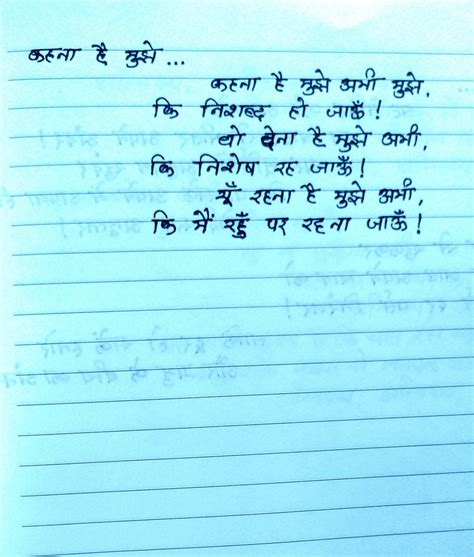 कहना है मुझे ...
कहना है मुझे अभी मुझे,
कि निशब्द हो जाऊँ!
वो देना है मुझे अभी,
कि निशेष रह जाऊँ!
यूँ रहना है मुझे अभी,
कि मैं रहूँ पर रहना जाऊँ!